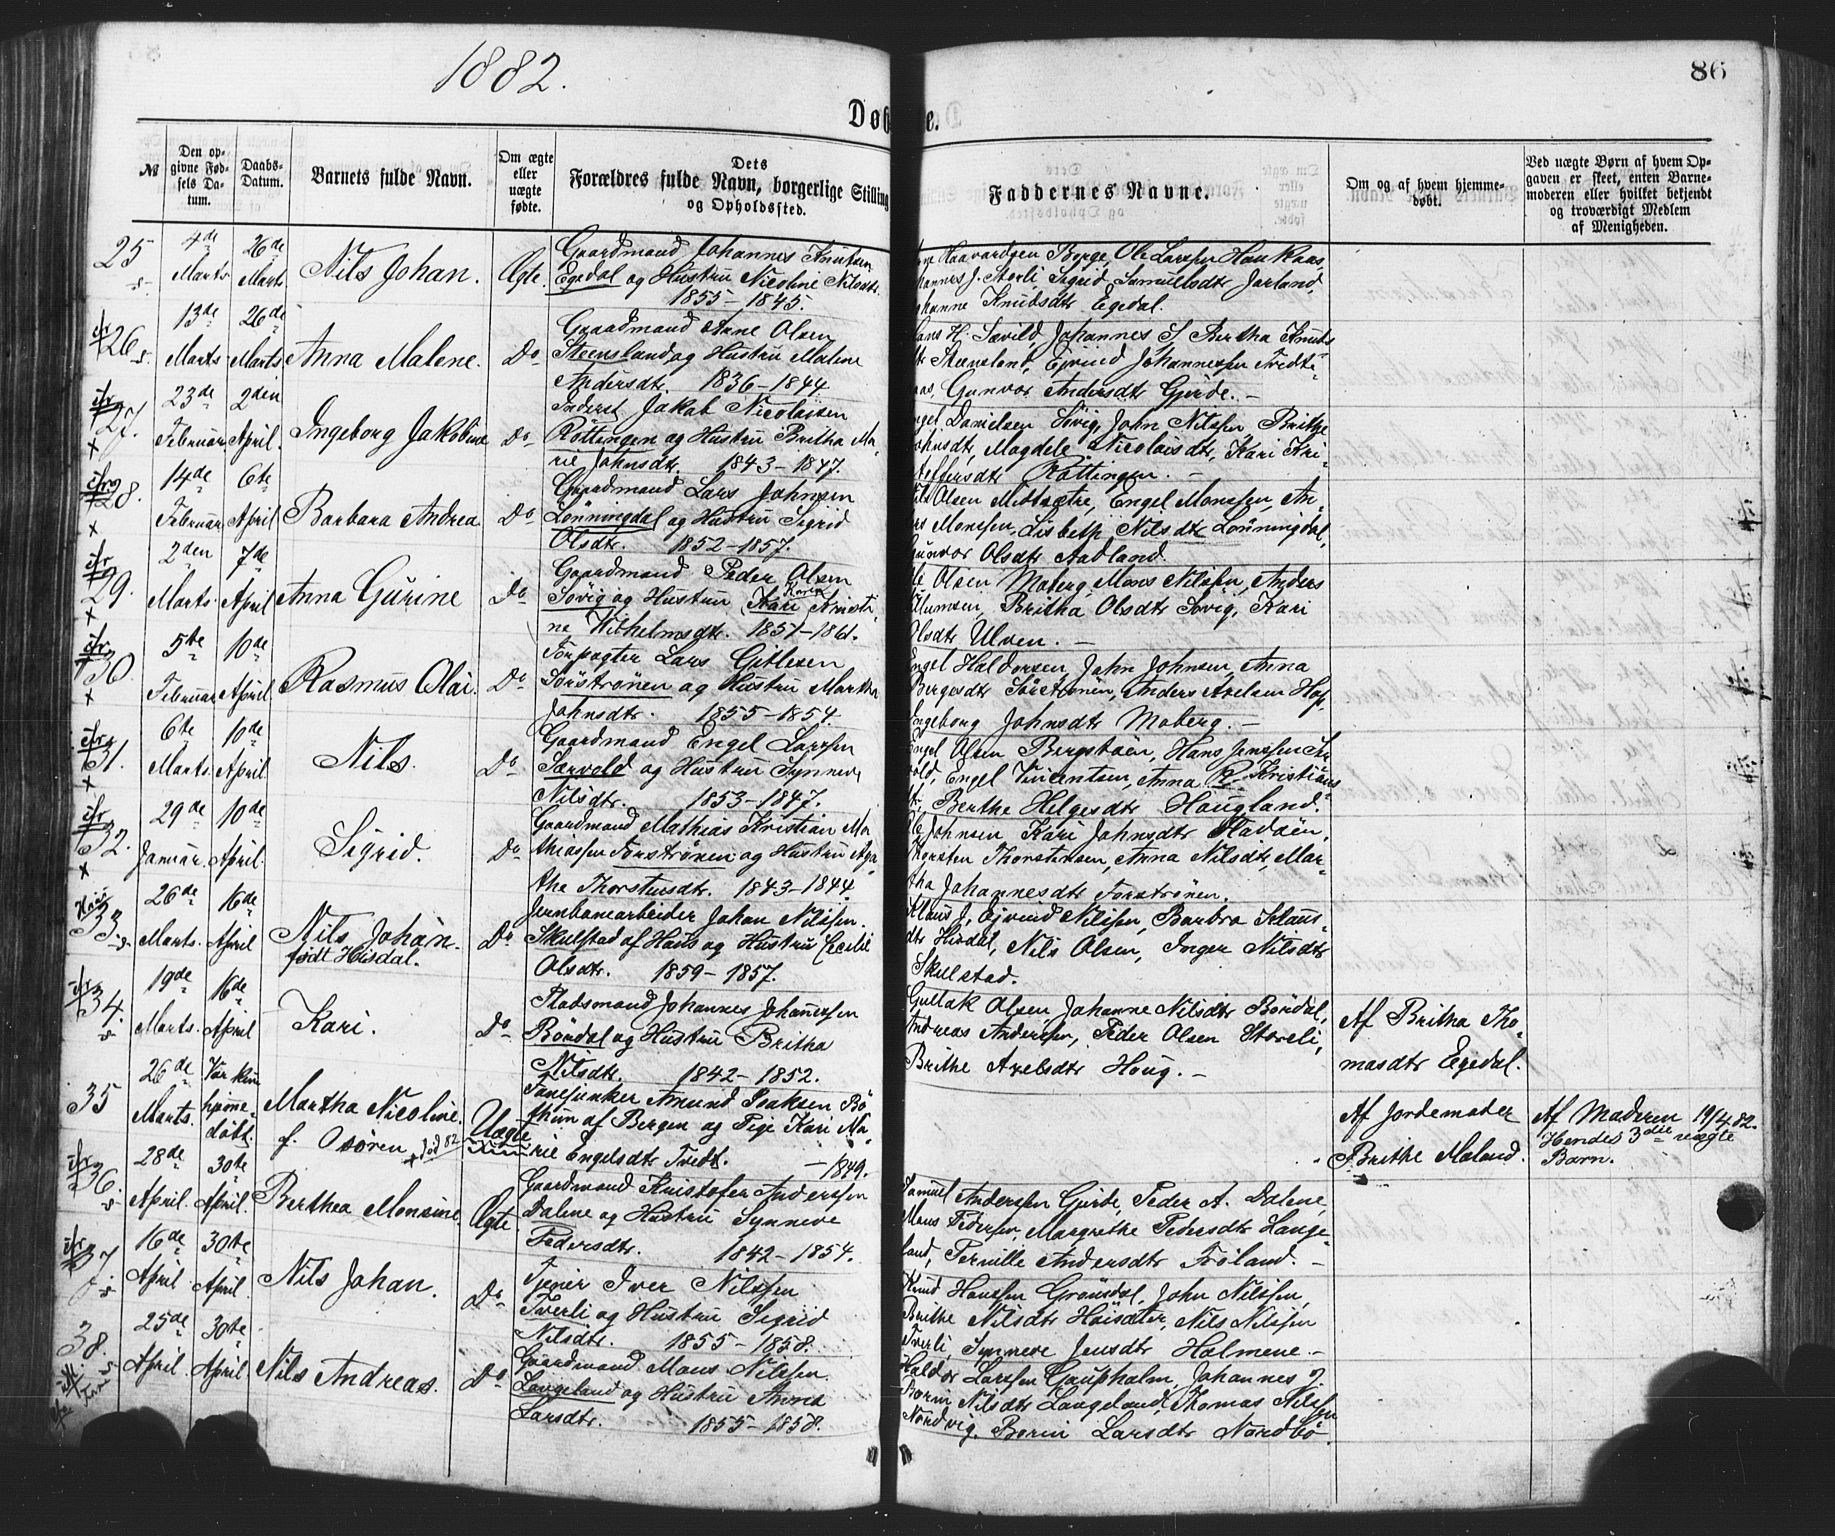 1882.
86
Døbte.
№
Den opgivne Fødsels Datum.
Daabs-Datum.
Barnets fulde Navn.
Om ægte eller uægte fødte.
Dets Forældres fulde Navn, borgerlige Stilling og Opholdssted.
Faddernes Navne.
Om og af hvem hjemmedøbt.
Ved uægte Børn af hvem Opgaven er skeet, enten Barnemoderen eller hvilket bekjendt og troværdigt Medlem af Menigheden.
25
4de Marts
26de Marts
Nils Johan.
Ægte.
Gaardmand Johannes Knutsen
Egedal og Hustru Nicoline Nilsdtr.
1855 – 1845.
Haavardsen Borge, Ole Larsen Haukaas,
J. Storli, Sigrid Samuelsdtr Jarland,
Knudsdtr Egedal.
26
13de Marts
26de Marts
Anna Malene.
Do
Gaardmand Aane Olsen
Steensland og Hustru Malene
Andersdtr. 1836 – 1844
H. Sævild, Johannes S. Bertha Knuds
dtr Steensland, Ejvind Johannessen Tvedte
aas, Gunvor Andersdtr Gjerde. –
27.
23de Februar
2den April.
Ingeborg Jakobine
Do
Inderst Jakob Nicolaisen
Røttingen og Hustru Britha Ma
rie Johnsdtr. 1843 – 1847.
Engel Danielsen Søvig, John Nilssen Brithe
Johnsdtr, Magdele Nicolaisdtr, Kari Kri
stoffersdtr Røttingen. –
28.
14de Februar
6te April
Barbara Andrea.
Do
Gaardmand Lars Johnsen
Lønningdal og Hustru Sigrid
Olsdtr. 1852 – 1857.
Nils Olsen Midtsætre, Engel Monssen, An
Monssen, Lisbeth Nilsdtr Lønningdal,
Gunvor Olsdtr Aadland.
29.
2den Marts.
7de April
Anna Gurine
Do
Gaardmand Peder Olsen
Søvig og Hustru Kari Karen Kristi
ne Wilhelmsdtr. 1851 – 1861.
Ole Olsen Moberg, Mons Nilssen, Anders
Britha Olsdtr Søvig, Kari
Olsdtr Ulven. –
30.
5te Februar
10de April
Rasmus Olai.
Do
Forpagter Lars Gitlesen
Sørstrønen og Hustru Martha
Johnsdtr. 1855 – 1854.
Engel Haldorsen, John Johnsen, Anna
Bergesdtr Sørstrønen, Anders Axelsen Hop,
Ingeborg Johnsdtr Moberg. –
31.
6te Marts.
10de April
Nils.
Do
Gaardmand Engel Larssen
Særvold og Hustru Synneve
Nilsdtr. 1853 – 1847.
Engel Olsen Bergstøen, Hans Jenssen Sær
vold, Engel Vincentsen, Anna R. Kristians
dtr, Berthe Helgesdtr Haugland.
32.
29de Januar.
10de April.
Sigrid.
Do
Gaardmand Mathias Kristian Ma
thiassen Forstrønen og Hustru Aga
the Thorstensdtr. 1843 – 1844.
Ole Johnsen, Kari Johnsdtr Hadøen,
Thorsten Thorstensen, Anna Nilsdtr, Mar
tha Johannesdtr Forstrønen.
33.
26de Marts.
16de April
Nils Johan.
født Hisdal.
Do
Jernbanearbeider Johan Nilssen.
Skulstad af Haus og Hustru Cecilie
Olsdtr. 1859 – 1857.
Klaus J., Ejvind Nilssen, Barbro Klaus
dtr Hisdal, Nils Olsen, Inger Nilsdtr
Skulstad.
34.
19de Marts.
16de April
Kari.
Do
Pladsmand Johannes Johannessen
Bordal og Hustru Britha
Nilsdtr. 1842 – 1852.
Gullak Olsen, Johanne Nilsdtr Børdal,
Andreas Andersen, Peder Olsen Storeli,
Brithe Axelsdtr Haug. –
Af Britha Tho
masdtr Egedal.
35
26de Marts.
Var kun hjemmedøbt.
Martha Nicoline.
f. Osøren
Uægte
Amund Isaksen Bø
thun af Bergen og Pige Kari Ma
rie Engelsdtr Tvedt. – 1849.
Af Jordemoder
Brithe Moland.
Af Moderen 19/4 82.
Hendes 3die uægte
Barn.
36.
28de April.
30te April.
Berthea Monsine.
Ægte
Gaardmand Kristofer Anderssen
Dalene og Hustru Synneve
Pedersdtr. 1842 – 1854.
Samuel Anderssen Gjerde, Peder A. Dalene,
Mons Pedersen, Margrethe Pedersdtr Lange
land, Pernille Andersdtr Frøland. –
37
16de April
30te April.
Nils Johan.
Do
Tjener Iver Nilssen
Tverli og Hustru Sigrid
Nilsdtr. 1855 – 1858.
Knud Hanssen Grønsdal, John Nilssen,
Brithe Nilsdtr Høisæter, Nils Nilssen
Tverli, Synneve Jensdtr Holmene. –
38.
25de April.
30te April
Nils Andreas.
Do
Gaardmand Mons Nilssen.
Langeland og Hustru Anna
Larsdtr. 1855 – 1858.
Haldor Larssen Gaupholm, Johannes J.
Borni Nilsdtr Langeland, Thomas Nilssen
Nordvig, Borni Larsdtr Nordbø.